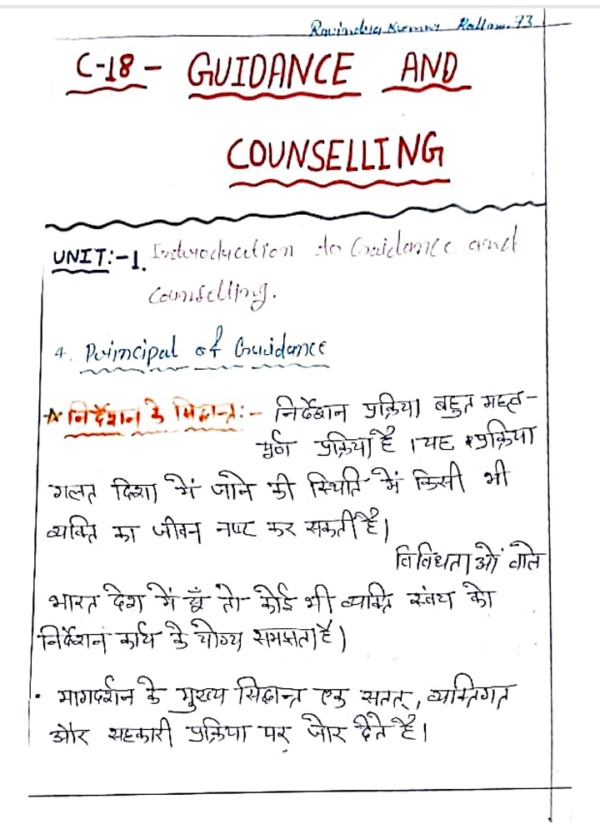 Ravindra Kumar Rollno. 73
C-18 - GUIDANCE AND
COUNSELLING
UNIT:-1. Introducation to Guidance and
Counselling.
4. Principal of Guidance
☆ निर्देशन के सिद्धान्त:- निर्देशन प्रक्रिया बहुत महत्व-
पूर्ण प्रक्रिया है । यह प्रक्रिया
गलत दिशा में जाने की स्थिति में किसी भी
व्यक्ति का जीवन नष्ट कर सकती है।
विविधताओं वाले
भारत देश में यूँ तो कोई भी व्यक्ति स्वंय को
निर्देशन कार्य के योग्य समझता है)
• मागदर्शन के मुख्य सिद्धान्त एक सतत्, व्यक्तिगत
और सहकारी प्रक्रिया पर जोर देते है।